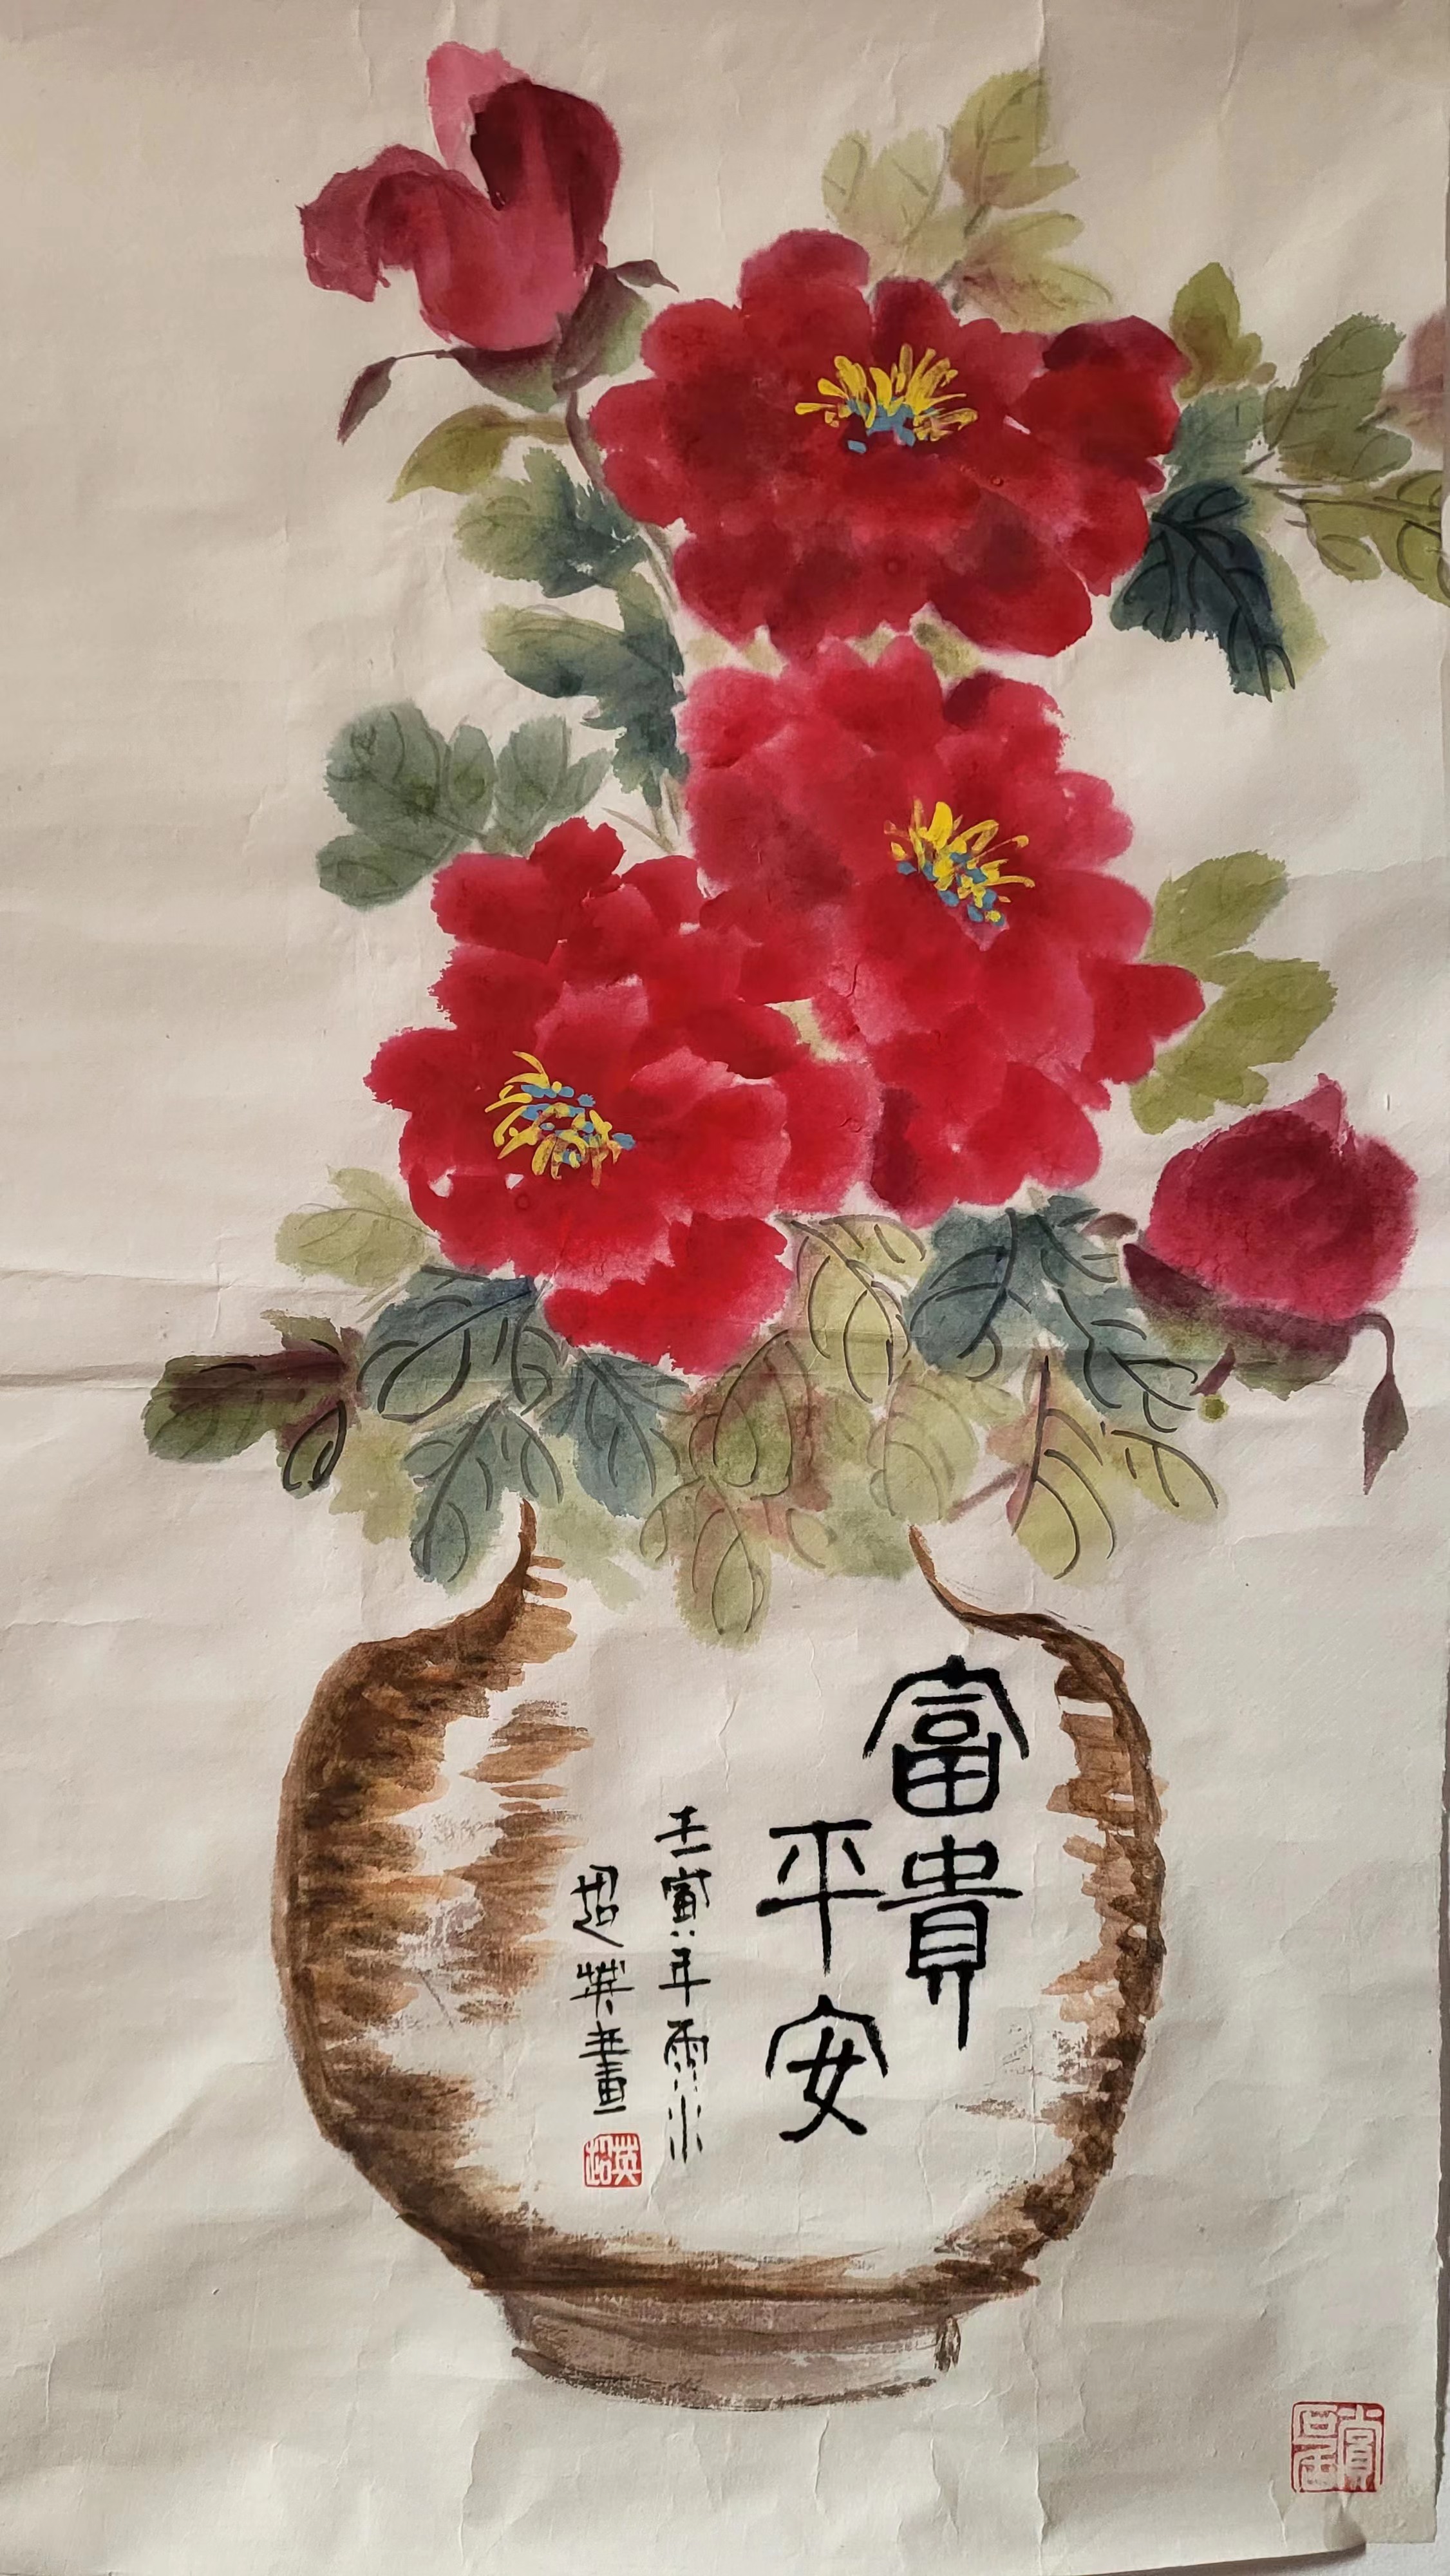 富貴
平安
壬寅年雨水
超英畫
超英